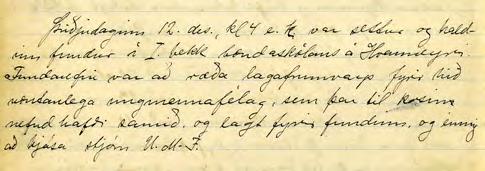 Þriðjudaginn 12. des., kl 4 e. h. var settur og hald-
inn fundur á I. bekk bændaskólans á Hvanneyri
Fundarefni var að ræða lagafrumvarp fyrir hið
væntanlega ungmennafélag, sem þar til kosin
nefnd hafði samið, og lagt fyrir fundinn, og einnig
að kjósa stjórn U.M.F.